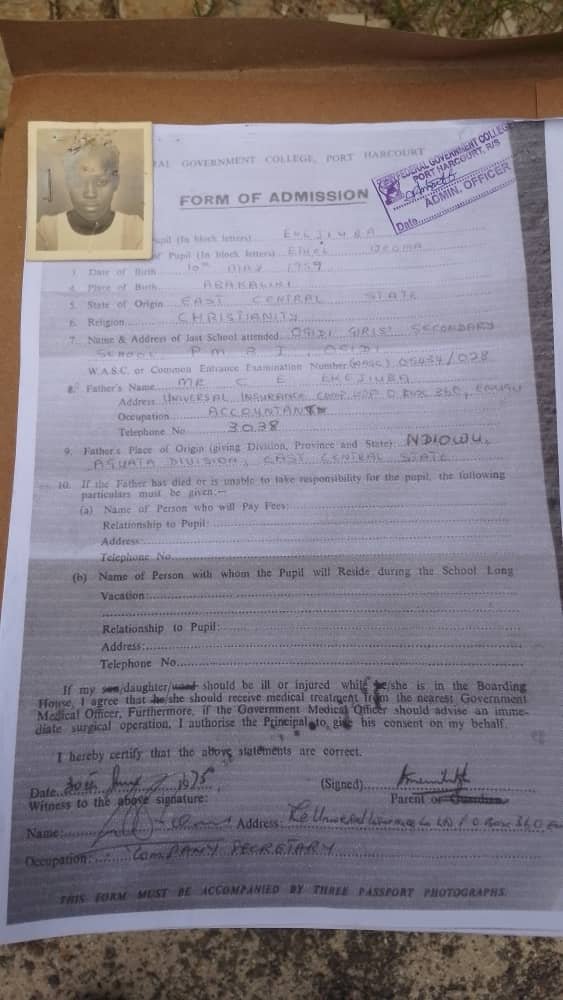 RAL GOVERNMENT COLLEGE, PORT HARCOURT
FEDERAL GOVERNMENT COLLEGE
PORT HARCOURT, R/S
ADMIN. OFFICER
Date
FORM OF ADMISSION
upil (In block letters)
of Pupil (In block letters) ETHEL IJEOMA
3. Date of Birth 10TH MAY 1959
4. Place of Birth ABAKALIKI
5. State of Origin EAST CENTRAL STATE
6. Religion CHRISTIANITY
7. Name & Address of last School attended OGIDI GIRLS' SECONDARY
SCHOOL P M B 1, OGIDI
W.A.S.C. or Common Entrance Examination Number (WASC) 05434/028
8. Father's Name MR C E EMEJIUBA
Address UNIVERSAL INSURANCE BOX 360, ENUGU
Occupation ACCOUNTANT
Telephone No 3038
9. Father's Place of Origin (giving Division, Province and State): NDIOWU,
AGUATA DIVISION, EAST CENTRAL STATE
10. If the Father has died or is unable to take responsibility for the pupil, the following
particulars must be given:—
(a) Name of Person who will Pay Fees:
Relationship to Pupil:
Address
Telephone No.
(b) Name of Person with whom the Pupil will Reside during the School Long
Vacation:
Relationship to Pupil:
Address:
Telephone No.
If my son/daughter/ward should be ill or injured while he/she is in the Boarding
House, I agree that he/she should receive medical treatment from the nearest Government
Medical Officer. Furthermore, if the Government Medical Officer should advise an imme-
diate surgical operation, I authorise the Principal to give his consent on my behalf.
I hereby certify that the above statements are correct.
Date 30th 1975 (Signed)
Parent or Guardian
Witness to the above signature:
Name: Address:
Occupation: COMPANY SECRETARY
THIS FORM MUST BE ACCOMPANIED BY THREE PASSPORT PHOTOGRAPHS.